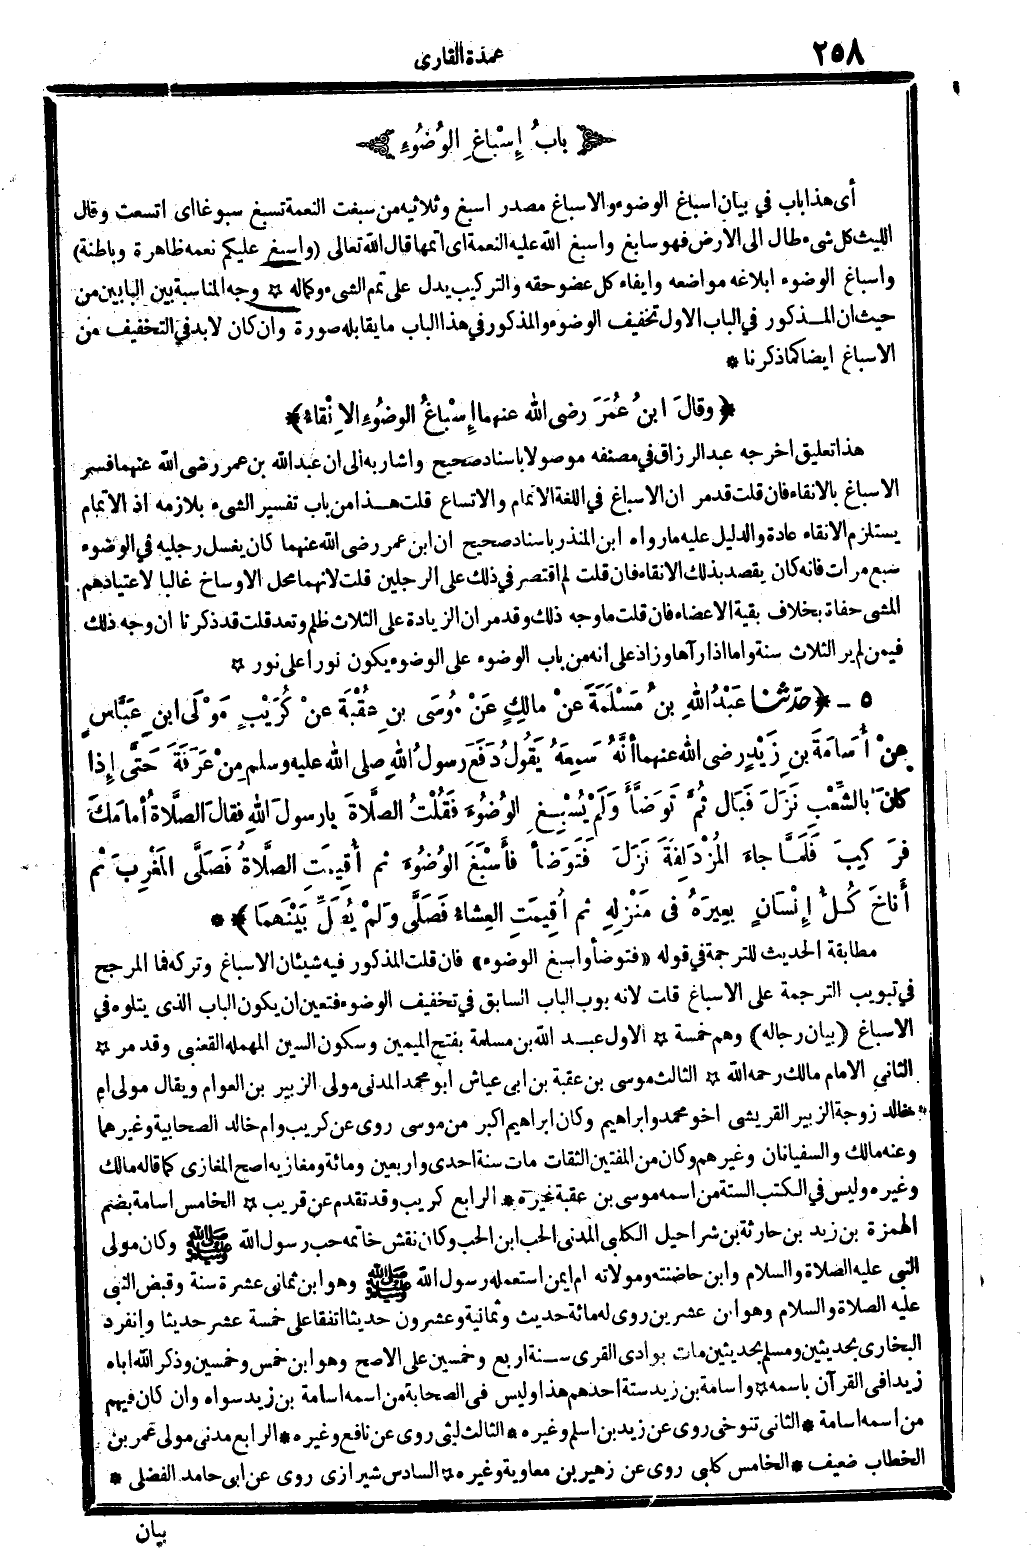 ٢٥٨
عمدة القارى
باب إسباغ الوضوء
أى هذا باب في بيان اسباغ الوضوء والاسباغ مصدر اسبغ وثلاثيه من سبغت النعمة تسبغ سبوغا اى اتسعت وقال
الليث كل شىء طال الى الارض فهو سابغ واسبغ الله عليه النعمة اى اتمها قال الله تعالى (واسبغ عليكم نعمه ظاهرة وباطنة)
واسباغ الوضوء ابلاغه مواضعه وايفاء كل عضو حقه والتركيب يدل على تمم الشىء وكماله ☆ وجه المناسبة بين البابين من
حيث ان المـذكور في الباب الاول تخفيف الوضوء والمذكور في هذا الباب ما يقابله صورة وان كان لابد في التخفيف من
الاسباغ ايضا كما ذكرنا *
﴿ وقالَ ابنُ عُمَرَ رضى الله عنهما إسْباغُ الوضُوءِ الاِنْقاءُ ﴾
هذا تعليق اخرجه عبد الرزاق في مصنفه موصولا باسناد صحيح واشار به الى ان عبد الله بن عمر رضى الله عنهما فسر
الاسباغ بالانقاء فان قلت قد مر ان الاسباغ في اللغة الاتمام والاتساع قلت هـذا من باب تفسير الشىء بلازمه اذ الاتمام
يستلزم الانقاء عادة والدليل عليه ما رواه ابن المنذر باسناد صحيح ان ابن عمر رضى الله عنهما كان يغسل رجليه في الوضوء
سبع مرات فانه كان يقصد بذلك الانقاء فان قلت لم اقتصر في ذلك على الرجلين قلت لانهما محل الاوساخ غالبا لاعتيادهم
المشى حفاة بخلاف بقية الاعضاء فان قلت ما وجه ذلك وقد مر ان الزيادة على الثلاث ظلم وتعد قلت قد ذكرنا ان وجه ذلك
فيمن لم ير الثلاث سنة واما اذا رآها وزاد على انه من باب الوضوء على الوضوء يكون نورا على نور ☆
٥ ـ ﴿ حدّثنا عَبْدُ اللهِ بنُ مَسْلَمَةَ عنْ مالِكٍ عَنْ مُوسَى بنِ عقْبَةَ عنْ كُرَيْبٍ مَوْلَى ابنِ عَبَّاسٍ
عنْ أُسَامَةَ بنِ زَيْدٍ رضى الله عنهما أنَّهُ سَمِعَهُ يَقُولُ دَفَعَ رسولُ اللهِ صلى الله عليه وسلم مِنْ عَرَفَةَ حَتَّى إذا
كانَ بالشِّعْبِ نَزَلَ فَبَالَ ثُمَّ تَوَضَّأَ وَلَمْ يُسْبِغِ الوُضُوءَ فَقُلْتُ الصَّلاةَ يارسولَ اللهِ فقالَ الصَّلاةُ أمامَكَ
فرَكِيبَ فَلَمَّا جاءَ المُزْدَلِفَةَ نَزَلَ فَتَوَضأَ فأَسْبَغَ الوُضُوءَ ثم أُقِيمَتِ الصَّلاةُ فَصَلَّى المَغْرِبَ ثم
أناخَ كُلُّ إنْسَانٍ بعِيرَهُ فى مَنْزِلِهِ ثم أُقِيمَتِ العِشاءُ فَصَلَّى وَلَمْ يُصَلِّ بَيْنَهُمَا ﴾ *
مطابقة الحديث للترجمة في قوله «فتوضأ واسبغ الوضوء» فان قلت المذكور فيه شيئان الاسباغ وتركه فما المرجح
في تبويب الترجمة على الاسباغ قلت لانه بوب الباب السابق في تخفيف الوضوء فتعين ان يكون الباب الذى يتلوه في
الاسباغ (بيان رجاله) وهم خمسة ☆ الاول عبـد الله بن مسلمة بفتح الميمين وسكون السين المهمله القعنبى وقد مر ☆
الثاني الامام مالك رحمه الله ☆ الثالث موسى بن عقبة بن ابى عياش ابو محمد المدنى مولى الزبير بن العوام ويقال مولى ام
خالد زوجة الزبير القريشى اخو محمد وابراهيم وكان ابراهيم اكبر من موسى روى عن كريب وام خالد الصحابية وغيرهما
وعنه مالك والسفيانان وغيرهم وكان من المفتين الثقات مات سنة احدى واربعين ومائة ومغازيه اصح المغازى كما قاله مالك
وغيره وليس في الكتب الستة من اسمه موسى بن عقبة غيره * الرابع كريب وقد تقدم عن قريب ☆ الخامس اسامة بضم
الهمزة بن زيد بن حارثة بن شراحيل الكلبى المدنى الحب ابن الحب وكان نقش خاتمه حب رسول الله ﷺ وكان مولى
النبى عليه الصلاة والسلام وابن حاضنته ومولاته ام ايمن استعمله رسول الله ﷺ وهو ابن ثمانى عشرة سنة وقبض النبى
عليه الصلاة والسلام وهو ابن عشرين روى له مائة حديث وثمانية وعشرون حديثا اتفقا على خمسة عشر حديثا وانفرد
البخارى بحديثين ومسلم بحديثين مات بوادى القرى سـنة اربع وخمسين على الاصح وهو ابن خمس وخمسين وذكر الله اباه
زيدا فى القرآن باسمه ☆ واسامة بن زيد ستة احدهم هذا وليس فى الصحابة من اسمه اسامة بن زيد سواه وان كان فيهم
من اسمه اسامة * الثانى تنوخى روى عن زيد بن اسلم وغيره * الثالث ليثى روى عن نافع وغيره * الرابع مدنى مولى عمر بن
الخطاب ضعيف * الخامس كلبى روى عن زهير بن معاوية وغيره ☆ السادس شيرازى روى عن ابى حامد الفضلى *
بيان